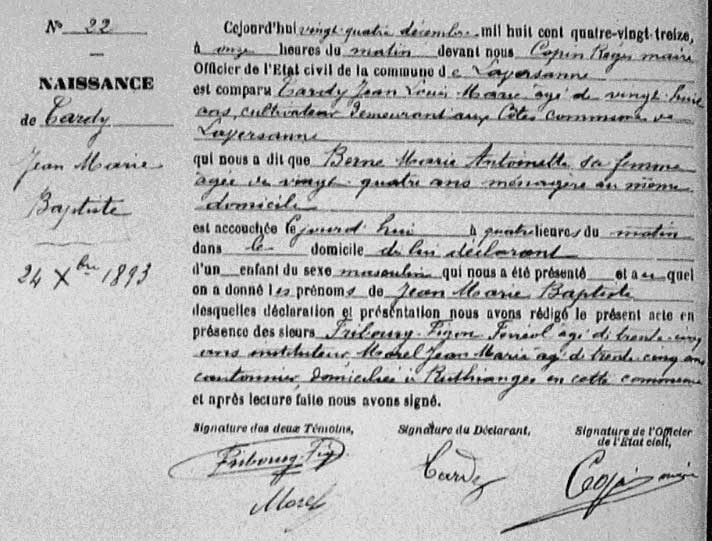 N° 22
NAISSANCE
de Tardy
Jean Marie
Baptiste
24 Xbre 1893
Cejourd'hui vingt-quatre décembre mil huit cent quatre-vingt-treize,
à onze heures du matin devant nous Copin Roger maire
Officier de l'Etat civil de la commune de Lapersanne
est comparu Tardy Jean Louis Marie âgé de vingt huit
ans, cultivateur demeurant aux Côtes commune de
Lapersanne
qui nous a dit que Berne Marie Antoinette sa femme
âgée de vingt-quatre ans ménagère au même
domicile
est accouchée Cejourd'hui à quatre heures du matin
dans le domicile de lui déclarant
d'un enfant du sexe masculin qui nous a été présenté et auquel
on a donné les prénoms de Jean Marie Baptiste
desquelles déclaration et présentation nous avons rédigé le présent acte en
présence des sieurs Fribourg-Figon âgé de trente-cinq
ans instituteur Morel Jean Marie âgé de trente-cinq ans
cantonnier domiciliés à Ruthianges en cette commune
et après lecture faite nous avons signé.
Signature des deux Témoins,
Fribourg-Fig
Morel
Signature du Déclarant,
Tardy
Signature de l'Officier
de l'Etat civil,
maire